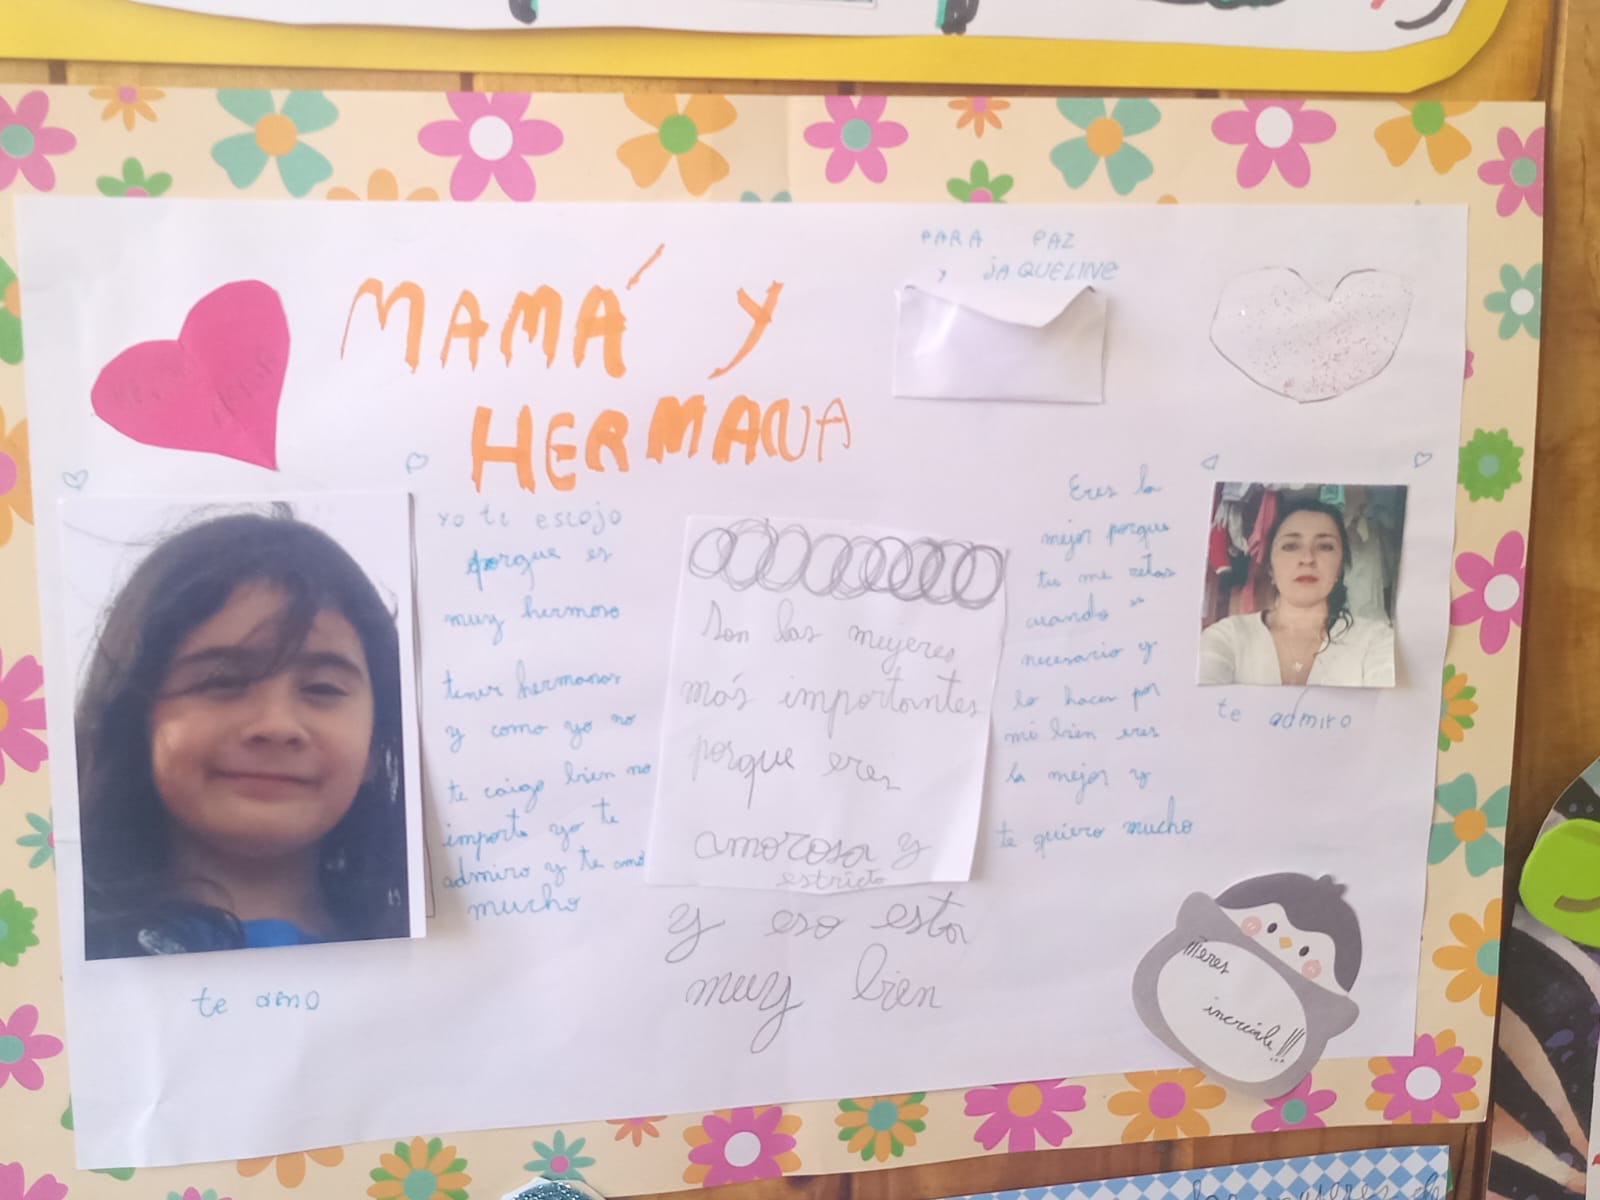 MAMÁ Y
HERMANA
PARA PAZ
y jAQUELINE
yo te escojo
porque es
muy hermoso
tener hermanas
y como yo no
te caigo bien no
importa yo te
admiro y te amo
mucho
te amo
Son las mujeres
más importantes
porque eres
amorosa y
estricta
y eso esta
muy bien
Eres la
mejor porque
tu me retas
cuando es
necesario y
lo haces por
mi bien eres
la mejor y
te quiero mucho
te admiro
¡¡¡eres
increible!!!